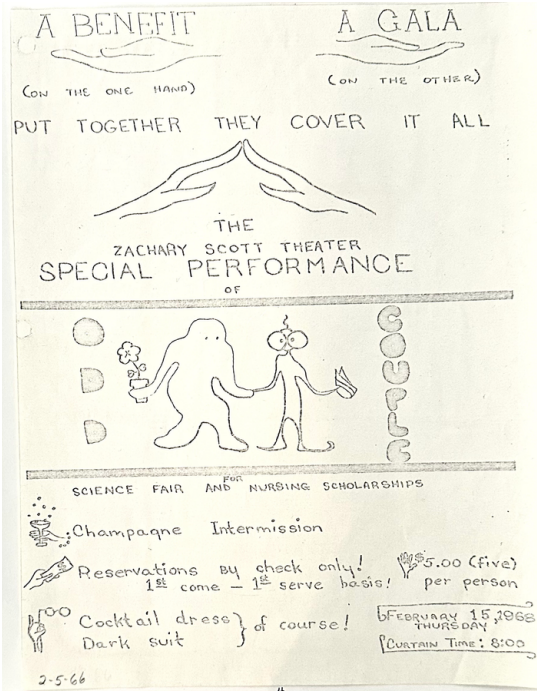 A BENEFIT
A GALA
(ON THE ONE HAND)
(ON THE OTHER)
PUT TOGETHER THEY COVER IT ALL
THE
ZACHARY SCOTT THEATER
SPECIAL PERFORMANCE
OF
ODD
COUPLE
FOR
SCIENCE FAIR AND NURSING SCHOLARSHIPS
Champagne Intermission
Reservations By check only!
1st come – 1st serve basis!
$5.00 (five)
per person
Cocktail dress
Dark suit
} of course!
FEBRUARY 15, 1968
THURSDAY
CURTAIN TIME: 8:00
2-5-66